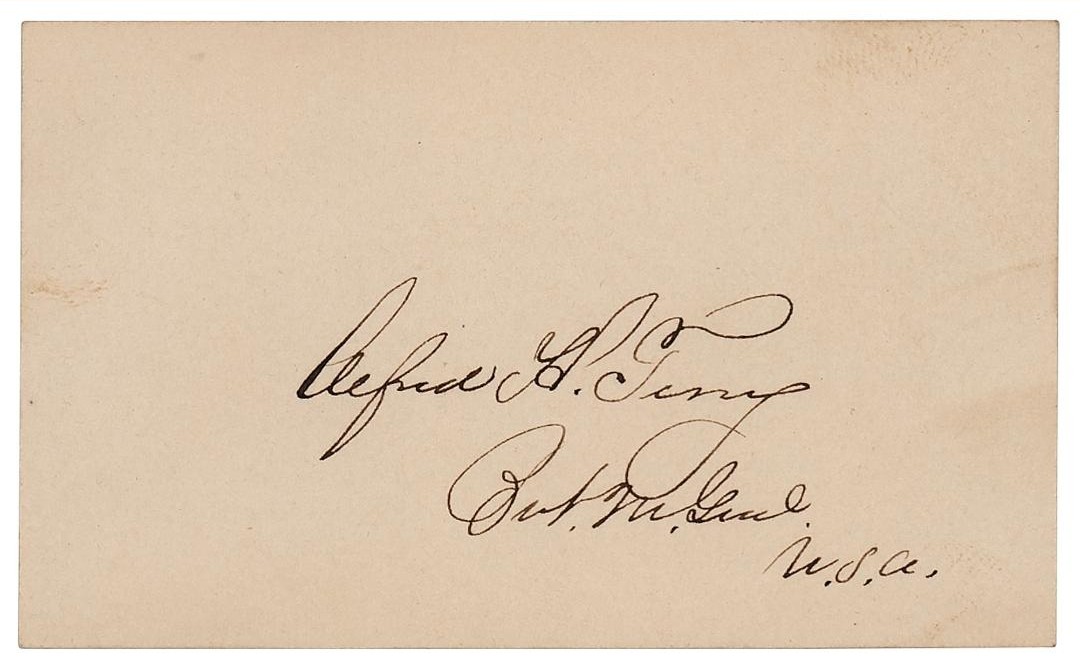 Alfred H. Terry
Bvt. M. Genl.
U.S.A.